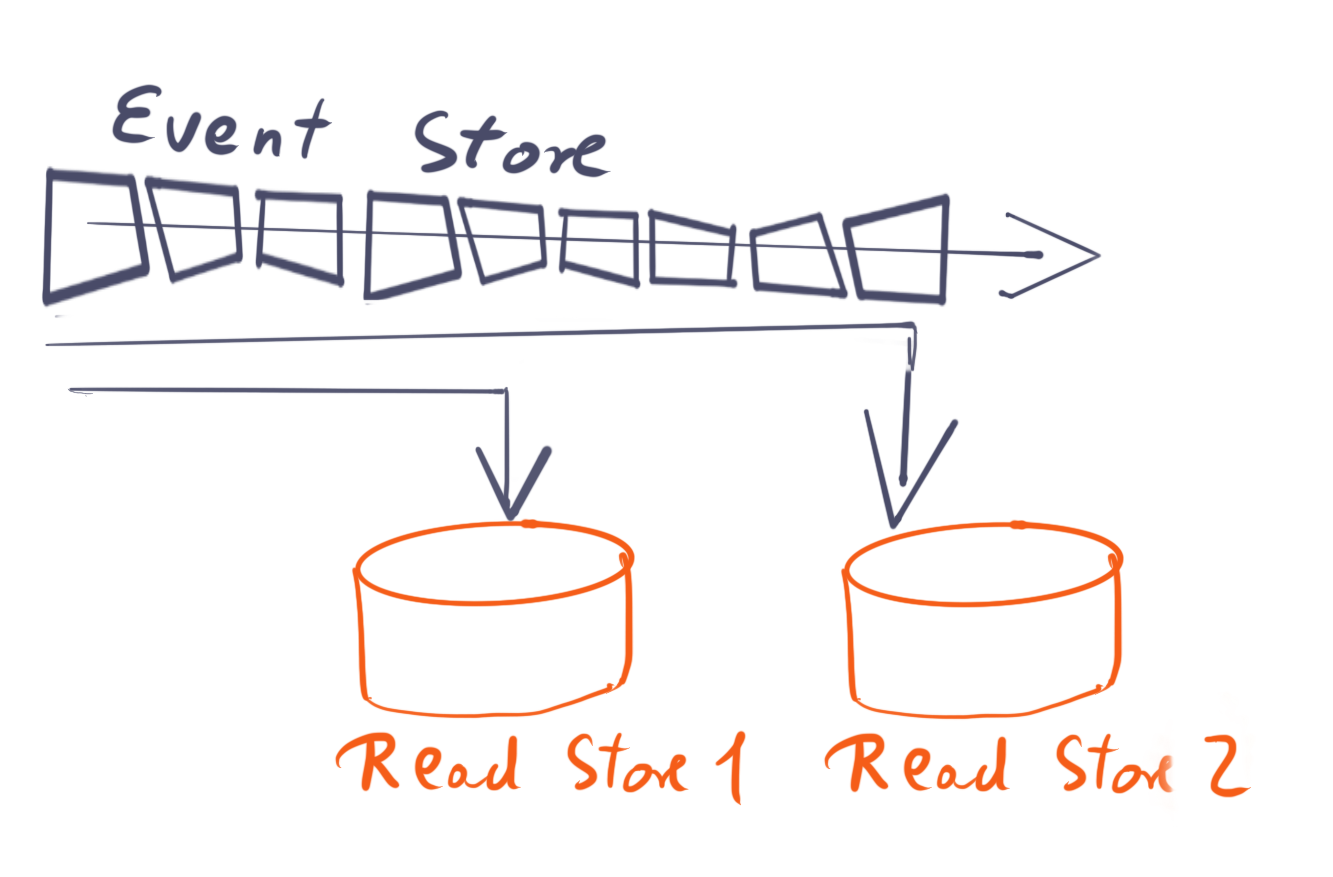 Event Store
Read Store 1
Read Store 2